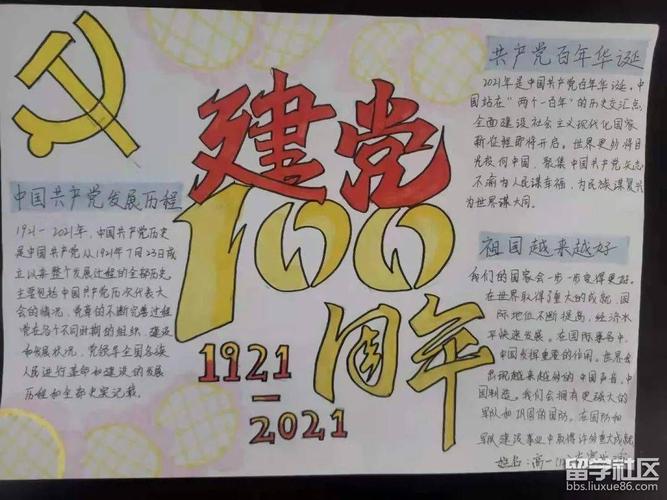 建党
100
周年
1921
—
2021
中国共产党发展历程
1921－2021年,中国共产党历史
是中国共产党从1921年7月23日成
立以来整个发展过程的全部历史
主要包括中国共产党历次代表大
会的情况,党章的不断完善过程
党在各个不同时期的组织、建设
和发展状况,党领导全国各族
人民进行革命和建设的发展
历程和全部史实记载。
共产党百年华诞
2021年是中国共产党百年华诞,中
国站在“两个一百年”的历史交汇点,
全面建设社会主义现代化国家
新征程即将开启。世界更多将目
光投向中国,聚集中国共产党矢志
不渝为人民谋幸福,为民族谋复兴
为世界谋大同。
祖国越来越好
我们的国家会一步一步变得更好。
在世界取得了重大的成就,国
际地位不断提高,经济水
平快速发展。在国际舞台中,
中国发挥重要的作用。世界会
出现越来越好的中国声音,中
国制造。我们会拥有更强大的
军队和巩固的国防。在国防和
军队建设事业中取得许多重大成就
姓名:高一
留学社区
bbs.liuxue86.com